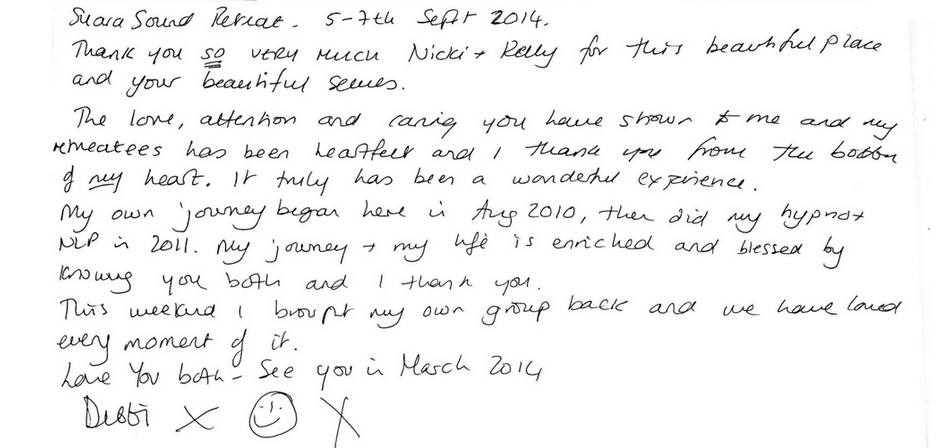 Suara Sound Retreat. 5-7th Sept 2014.
Thank you so very much Nicki + Kelly for this beautiful place
and your beautiful selves.
The love, attention and caring you have shown to me and my
retreatees has been heartfelt and I thank you from the bottom
of my heart. It truly has been a wonderful experience.
My own journey began here in Aug 2010, then did my hypno +
NLP in 2011. My journey + my life is enriched and blessed by
knowing you both and I thank you.
This weekend I brought my own group back and we have loved
every moment of it.
Love You both - See you in March 2014
Debbi X 😊 X